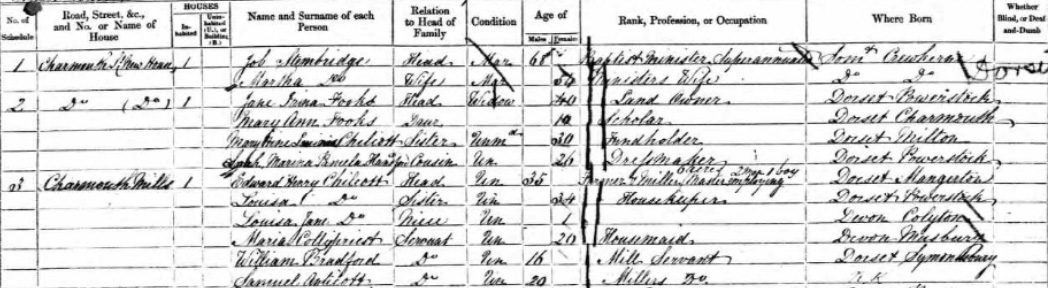 No. of Schedule | Road, Street, &c., and No. or Name of House | HOUSES In-habited | Unin-habited (U.), or Building (B.) | Name and Surname of each Person | Relation to Head of Family | Condition | Age of Males | Females | Rank, Profession, or Occupation | Where Born | Whether Blind, or Deaf-and-Dumb
1 | Charmouth St | 1 | Job Stembridge | Head | Mar | 68 | Baptist Minister Superannuated | Somt Crewkerne | Dorset
Martha Do | Wife | Mar | Ministers Wife | Do Do
2 | Do (Do) | 1 | Jane Fooks | Head | Widow | 40 | Land Owner | Dorset Powerstock
Mary Ann Fooks | Daur | Scholar | Dorset Charmouth
Chilcott | Sister | Unmd | 30 | Fundholder | Dorset Milton
Marina Pamela | Cousin | Un | 26 | Dressmaker | Dorset Powerstock
3 | Charmouth Mills | 1 | Edward Henry Chilcott | Head | Un | 35 | Farmer & Miller Master employing 2 men 1 boy | Dorset Mangerton
Louisa Do | Sister | Un | 34 | Housekeeper | Dorset Powerstock
Louisa Jane Do | Niece | Un | 1 | Devon Colyton
Maria Collypriest | Servant | Un | 20 | Housemaid | Devon Musbury
William Bradford | Do | Un | 16 | Mill Servant | Dorset Symondsbury
Samuel | Do | Un | 20 | Millers Do | N.K